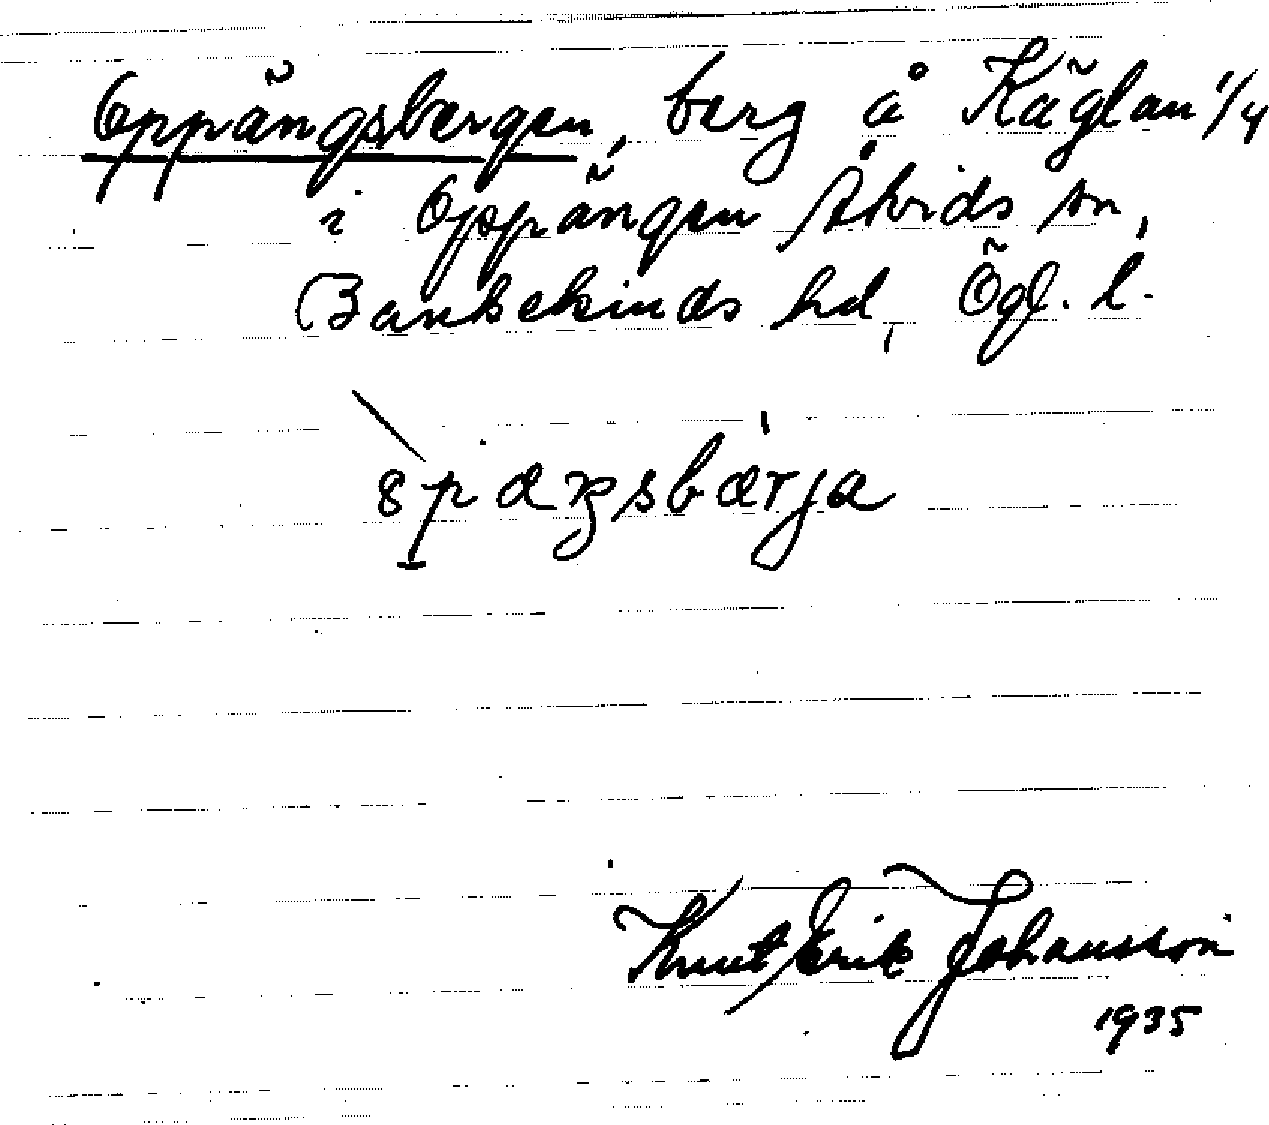 Oppängsbergen, berg å Käglan 1/4
i Oppängen Åtvids sn,
Bankekinds hd, Ögl. l.
Knut Erik Johansson
1935